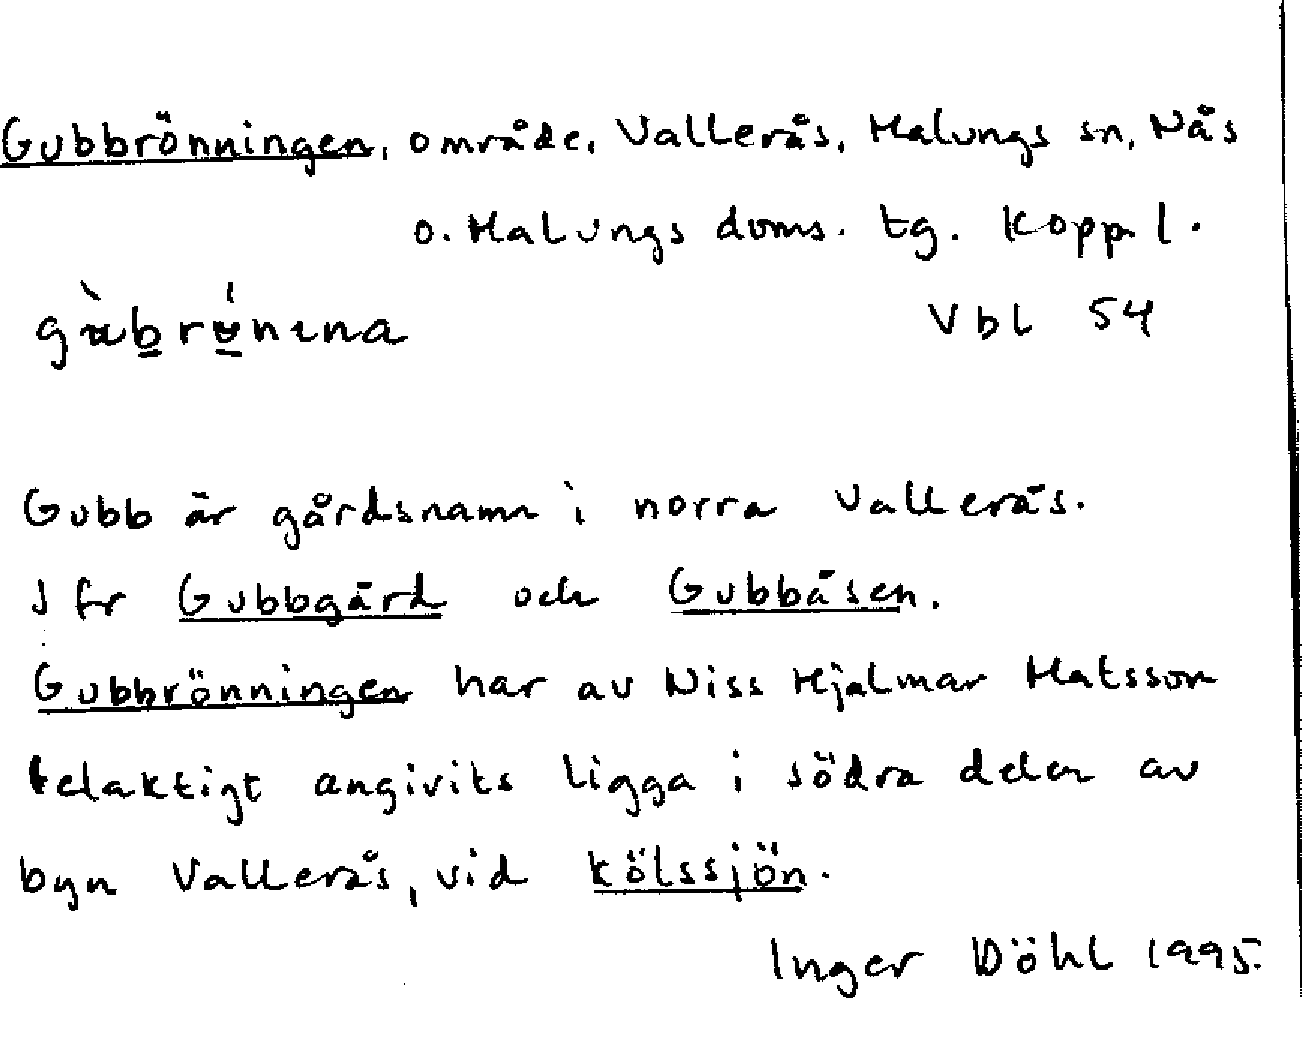 Gubbrönningen, område, Vallerås, Malungs sn, Nås
o. Malungs doms. tg. Kopp l.
Vbl 54
Gubb är gårdsnamn i norra Vallerås.
Jfr Gubbgärd och Gubbåsen.
Gubbrönningen har av Niss Hjalmar Matsson
felaktigt angivits ligga i södra delen av
byn Vallerås, vid Kölssjön.
Inger Döhl 1995.